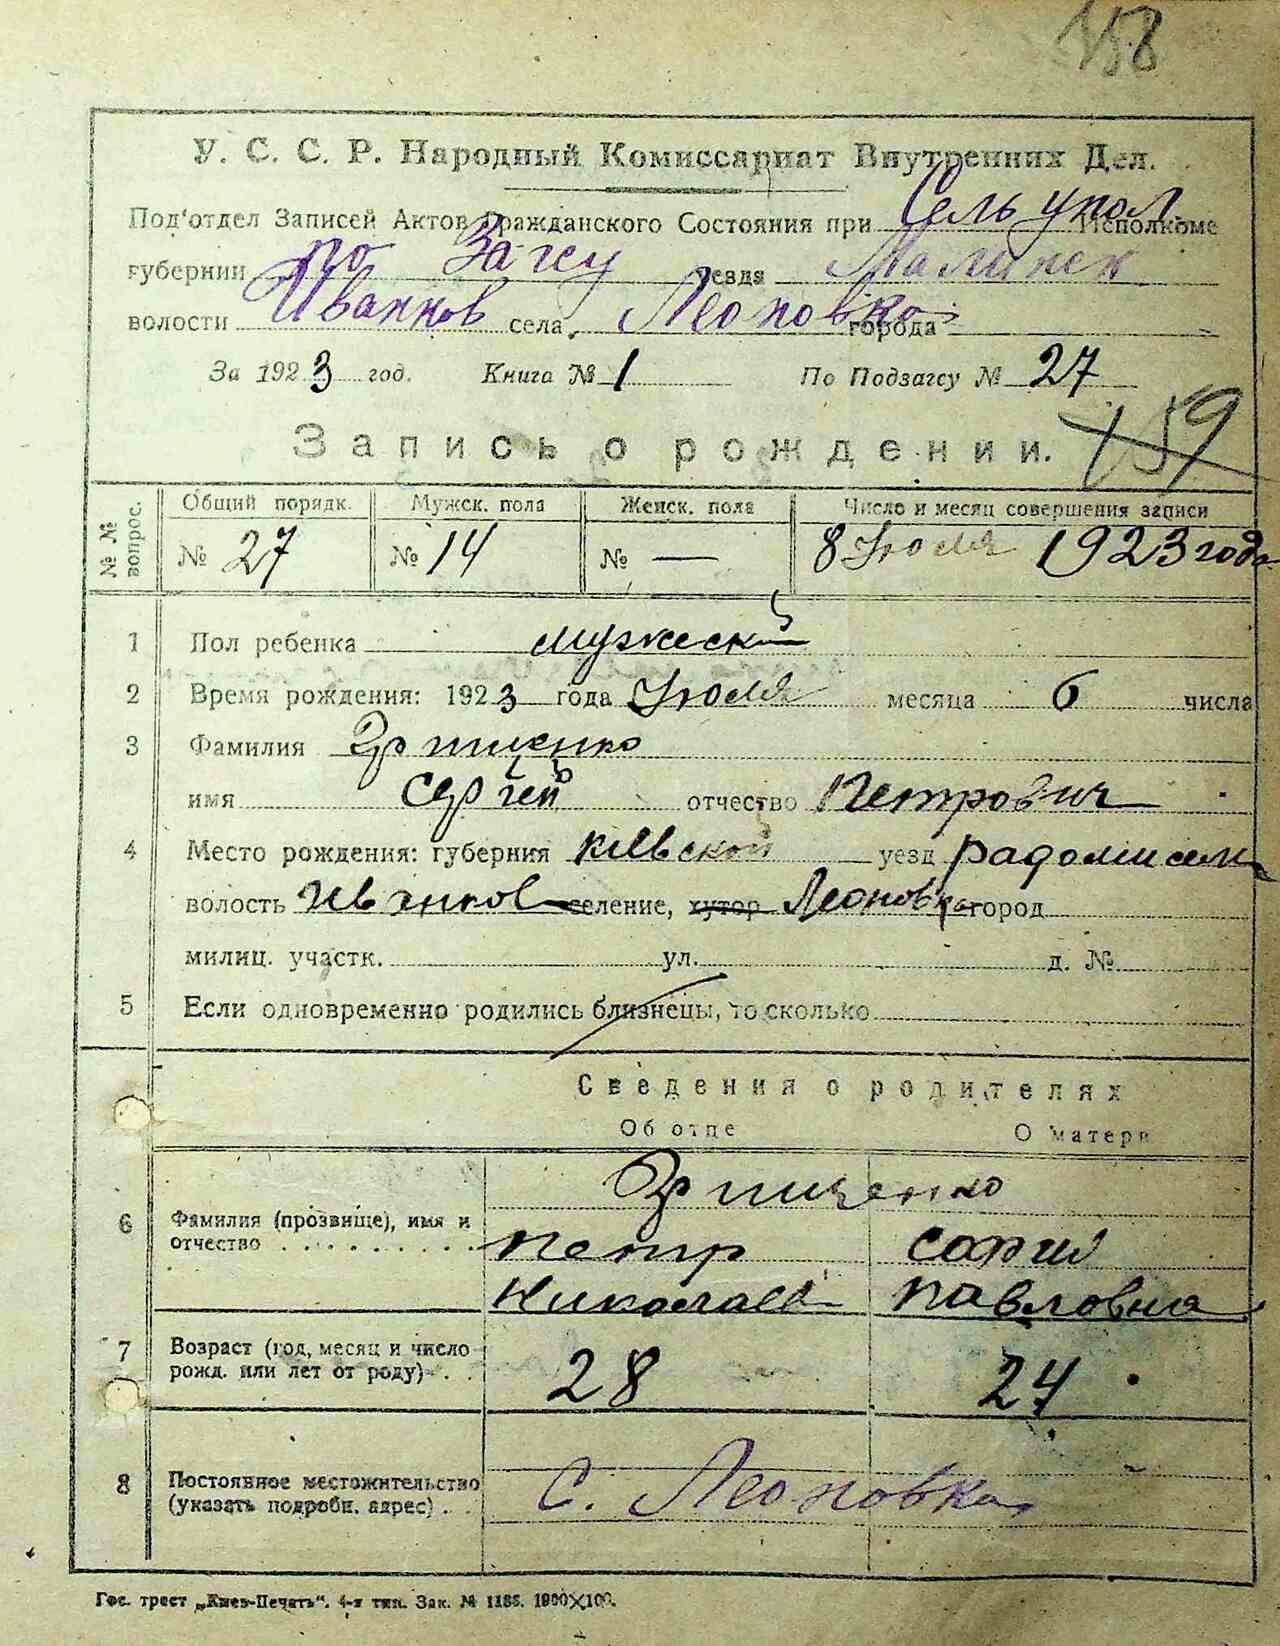 158
У. С. С. Р. Народный Комиссариат Внутренних Дел.
Под'отдел Записей Актов Гражданского Состояния при Сельупол. Исполкоме
губернии по Загсу уезда Малинск
волости Иванков села Леоновка города
За 1923 год. Книга № 1 По Подзагсу № 27
159
Запись о рождении.
№№ вопрос. Общий порядк. Мужск. пола Женск. пола Число и месяц совершения записи
№ 27 № 14 № — 8 Июля 1923 года
1 Пол ребенка мужеский
2 Время рождения: 1923 года Июля месяца 6 числа
3 Фамилия Грищенко
имя Сергей отчество Петрович
4 Место рождения: губерния Киевской уезд Радомисель
волость Иванков селение, хутор Леоновка город
милиц. участк. ул. д. №
5 Если одновременно родились близнецы, то сколько
Сведения о родителях
Об отце О матери
Грищенко
6 Фамилия (прозвище), имя и
отчество . . . . . . . . . Петр София
Николаев Павловна
7 Возраст (год, месяц и число
рожд. или лет от роду) . . 28 24
8 Постоянное местожительство
(указать подробн. адрес) . . с. Леоновка
Гос. трест „Киев-Печать“. 4-я тип. Зак. № 1186. 1900×100.